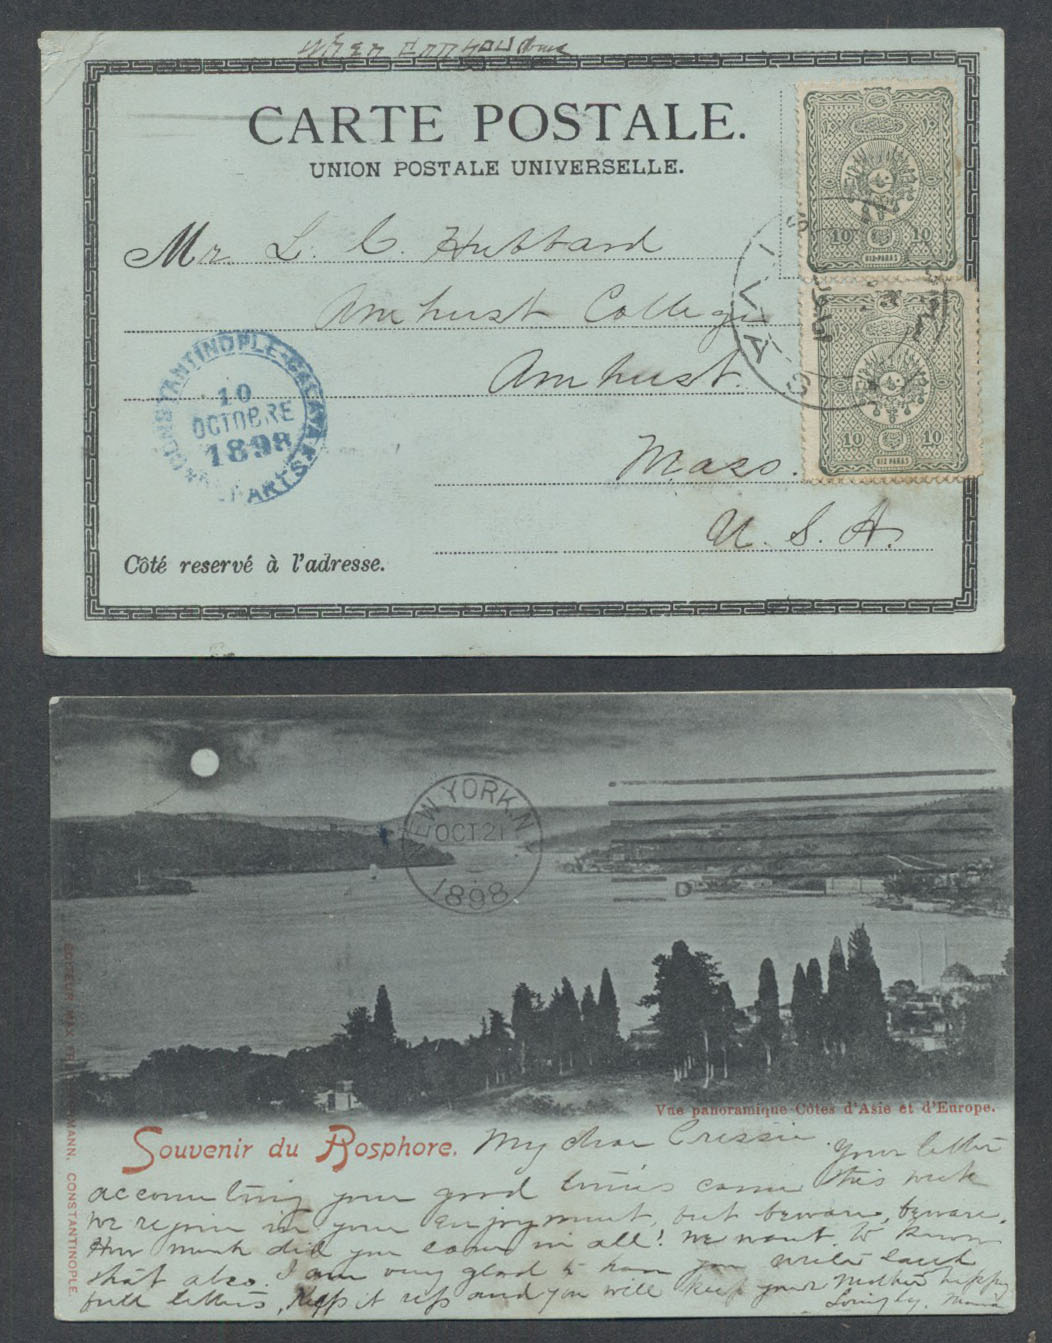 CARTE POSTALE.
UNION POSTALE UNIVERSELLE.
Mr. L. C. Hubbard
Amherst College
Amherst.
Mass.
U. S. A.
CONSTANTINOPLE-GALATA
DEPARTS
10
OCTOBRE
1898
SIVAS
10 10
DIX-PARAS
10 10
DIX PARAS
Côté reservé à l'adresse.
NEW YORK, N.Y.
OCT 21
1898
D
Vue panoramique Côtes d'Asie et d'Europe.
Souvenir du Bosphore.
EDITEUR MAX FRUCHTERMANN, CONSTANTINOPLE.
My dear Cressie. Your letter
accounting your good times came this week
We rejoice in your enjoyment, but beware, beware.
How much did you earn in all! We want to know
that also. I am very glad to have you write such
full letters, Keep it up and you will keep your Mother happy
Lovingly, Mama